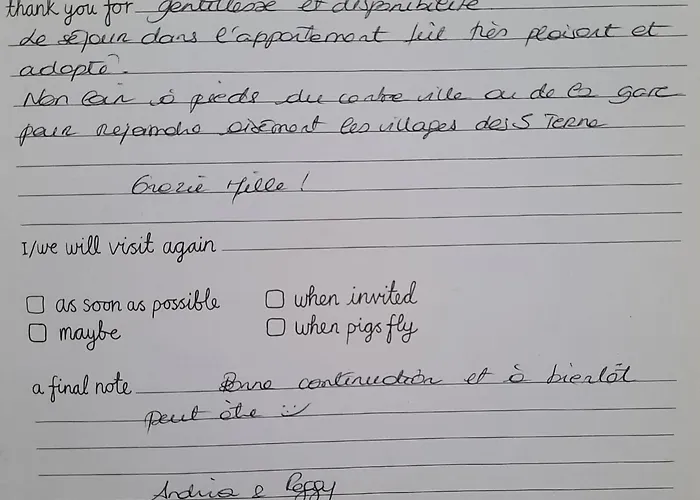 thank you for gentillesse et disponibilité
de séjour dans l'appartement fût très plaisant et
adapté.
Non loin à pieds du centre ville ou de la gare
pour rejoindre aisément les villages des 5 Terre
Grazie Mille !
I/we will visit again
as soon as possible
when invited
maybe
when pigs fly
a final note Bonne continuation et à bientôt
peut être :)
Andrea & Peggy